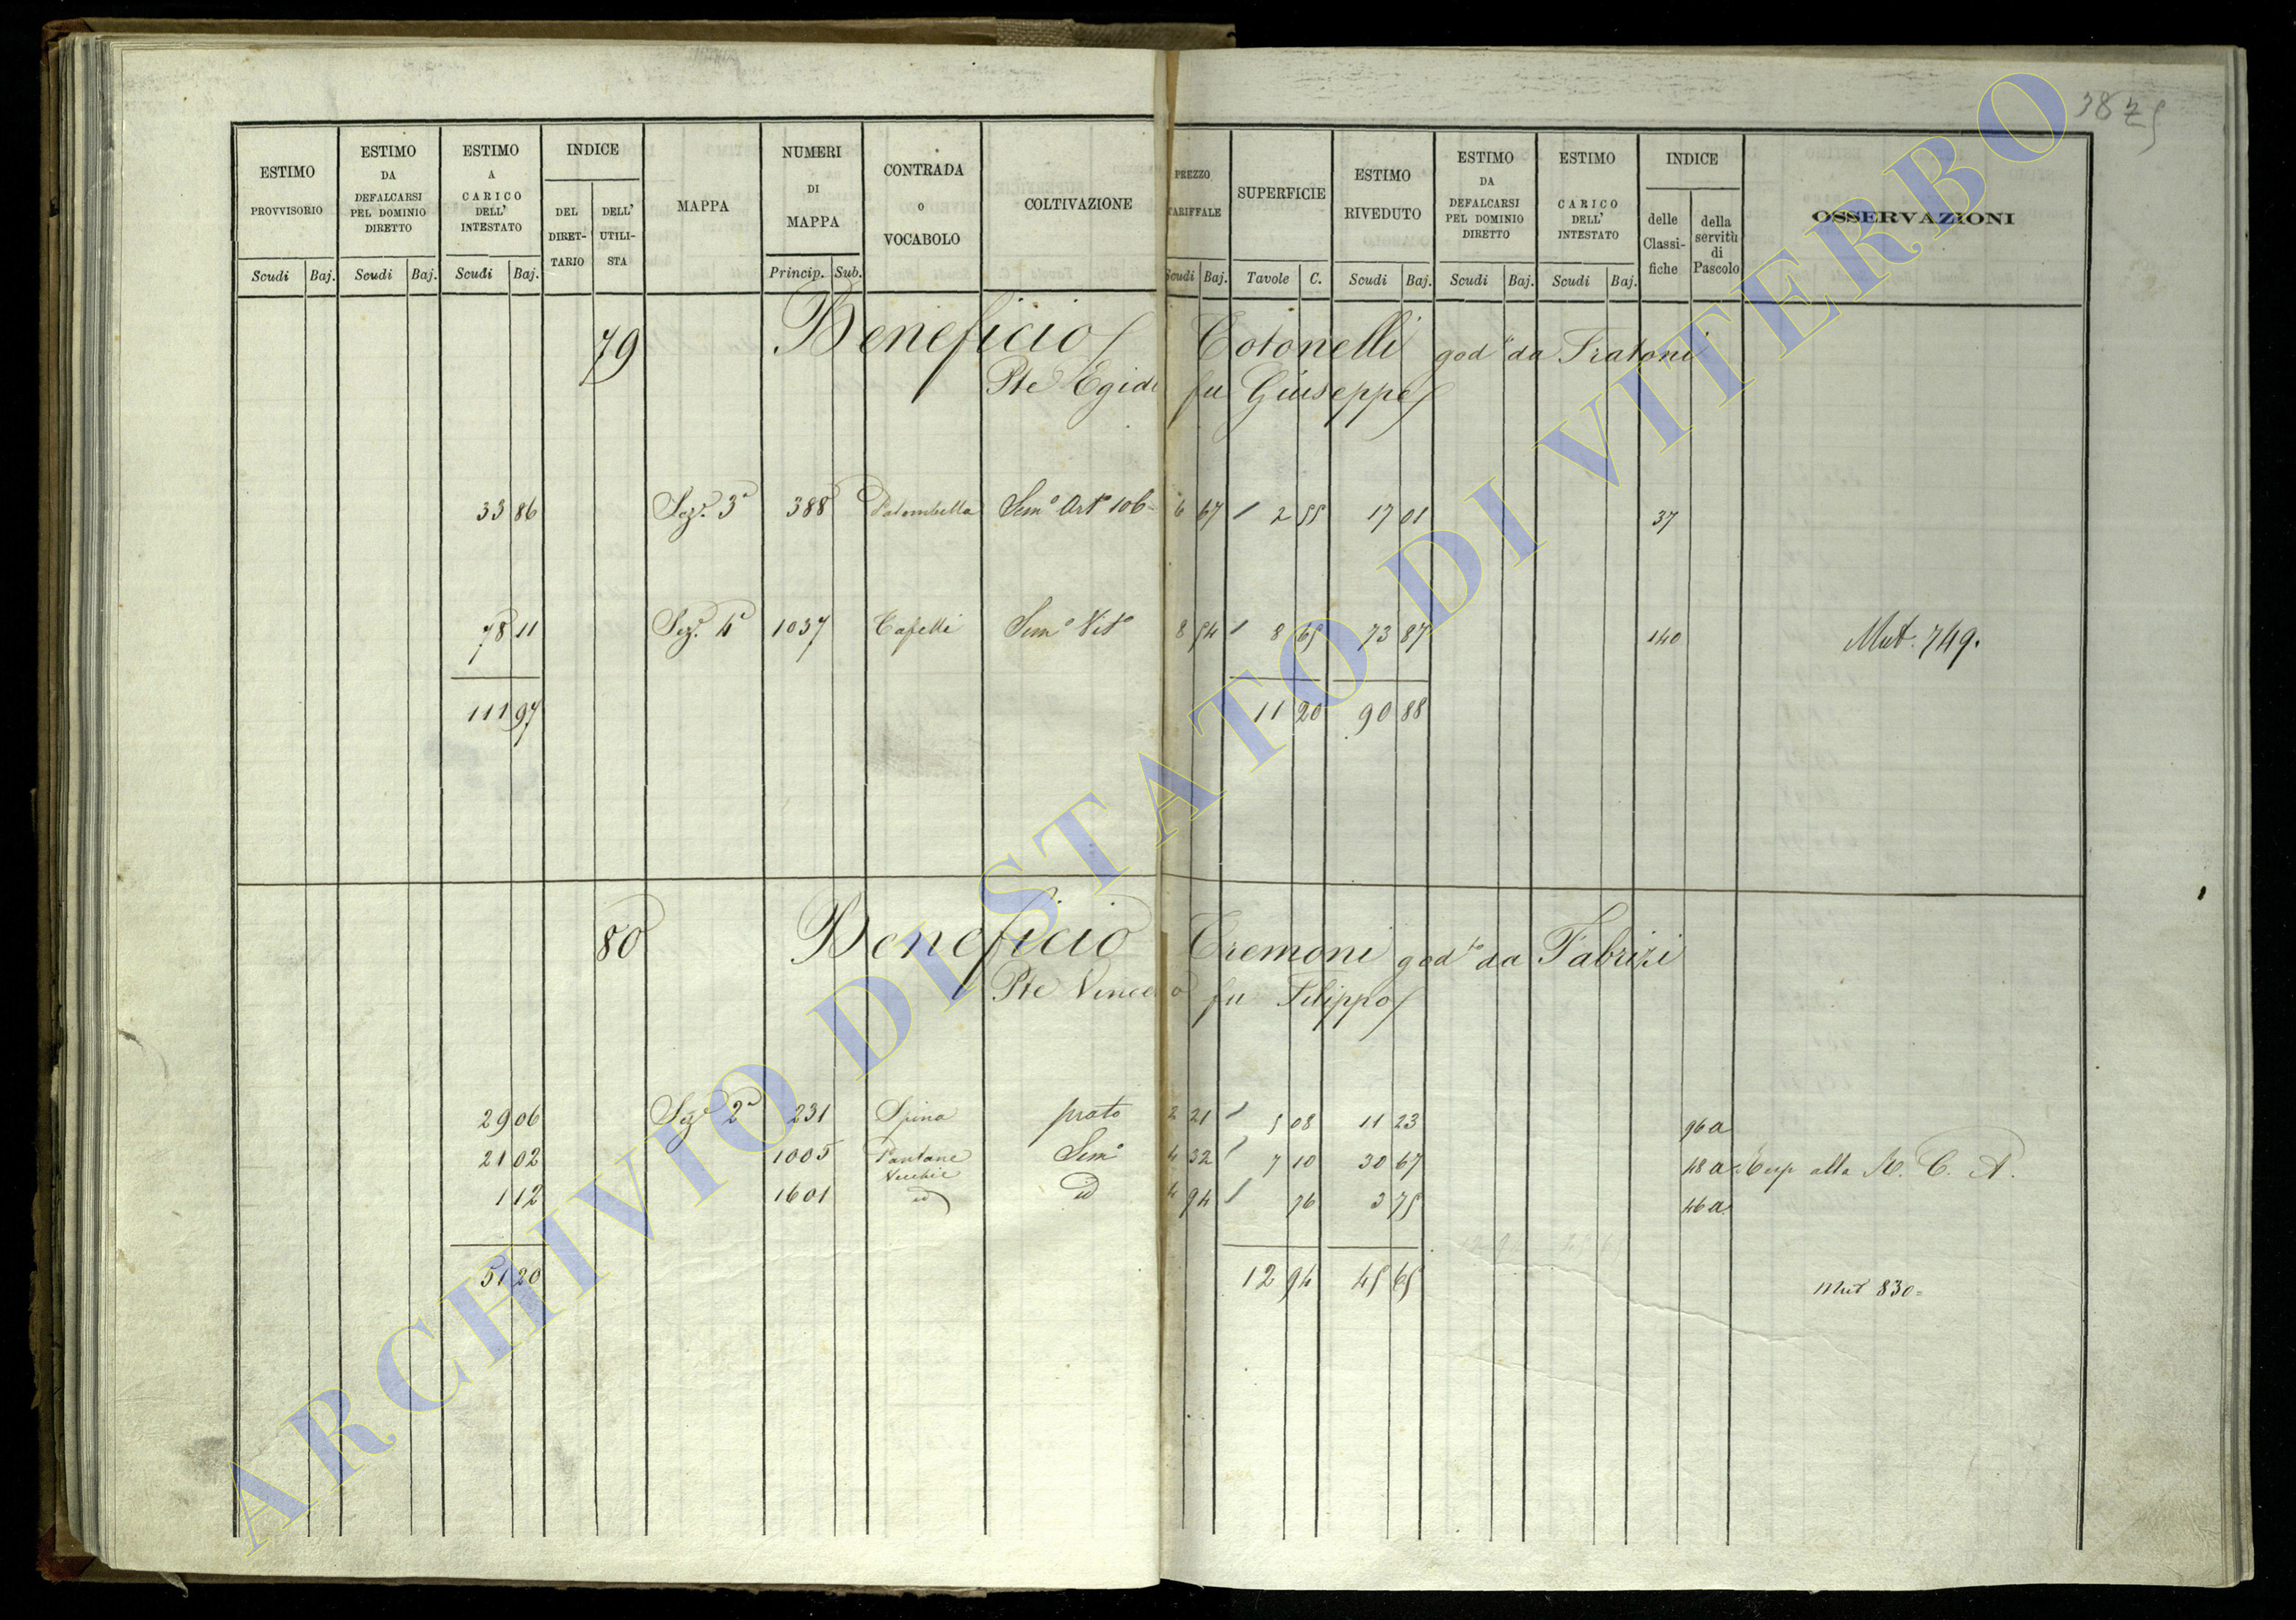 38 25
ESTIMO PROVVISORIO
ESTIMO DA DEFALCARSI PEL DOMINIO DIRETTO
ESTIMO A CARICO DELL' INTESTATO
INDICE
DEL DIRETTARIO
DELL' UTILISTA
MAPPA
NUMERI DI MAPPA
CONTRADA O VOCABOLO
COLTIVAZIONE
PREZZO TARIFFALE
SUPERFICIE
ESTIMO RIVEDUTO
ESTIMO DA DEFALCARSI PEL DOMINIO DIRETTO
ESTIMO CARICO DELL' INTESTATO
INDICE
delle Classifiche
della servitù di Pascolo
OSSERVAZIONI
Scudi Baj. Scudi Baj. Scudi Baj. Princip. Sub. Scudi Baj. Tavole C. Scudi Baj. Scudi Baj. Scudi Baj.
79 Beneficio Cotonelli god° da Fratoni
Pte Egidi fu Giuseppe
33 86 Sez. 3a 388 Palombella Semo Arto 106 6 67 2 55 17 01 37
78 11 Sez. 4a 1037 Cafelli Semo Vito 8 54 8 65 73 87 140 Mut. 749.
111 97 11 20 90 88
80 Beneficio Cremoni godto da Fabrizi
Pte Vince o fu Filippo
29 06 Sez 2a 231 Spina prato 2 21 5 08 11 23 96 a
21 02 1005 Pantane Vecchie Semo 4 32 7 10 30 67 48 a alla C. A.
1 12 1601 id id 4 94 76 3 75 46 a
51 20 12 94 45 65 Mut 830=
ARCHIVIO DI STATO DI VITERBO